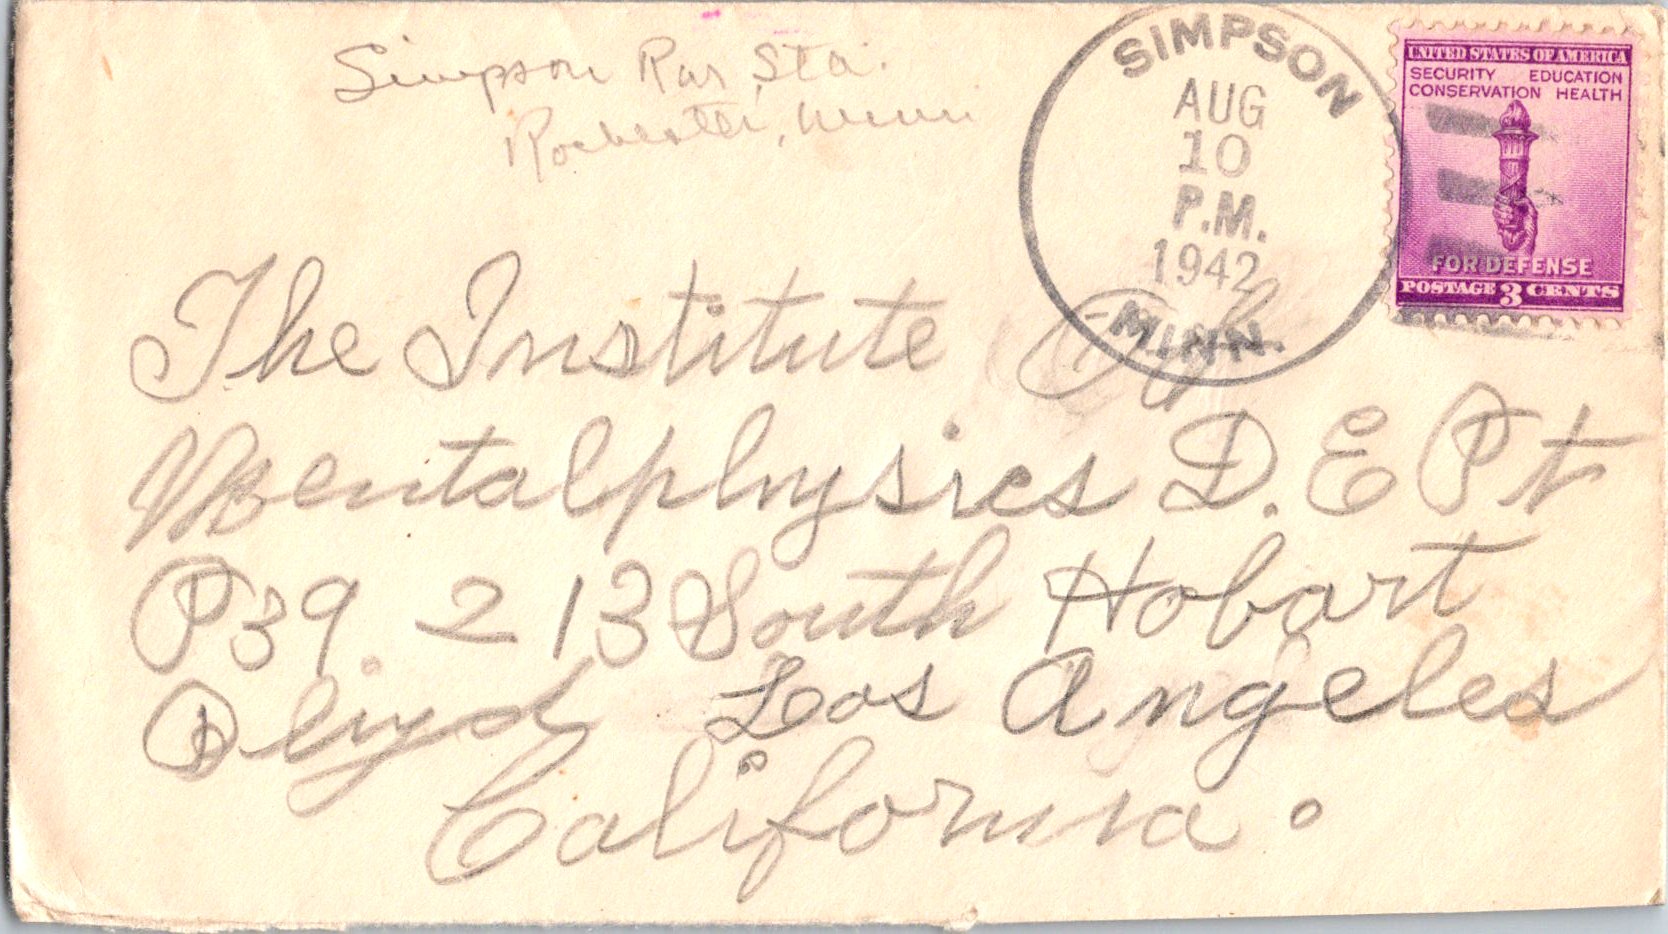 Simpson Rur, Sta.
Rochester, Minn
SIMPSON
AUG
10
P.M.
1942
MINN.
UNITED STATES OF AMERICA
SECURITY EDUCATION
CONSERVATION HEALTH
FOR DEFENSE
POSTAGE 3 CENTS
The Institute Of
Mentalphysics D. E Pt
P39 213 South Hobart
Blvyd Los Angeles
California.